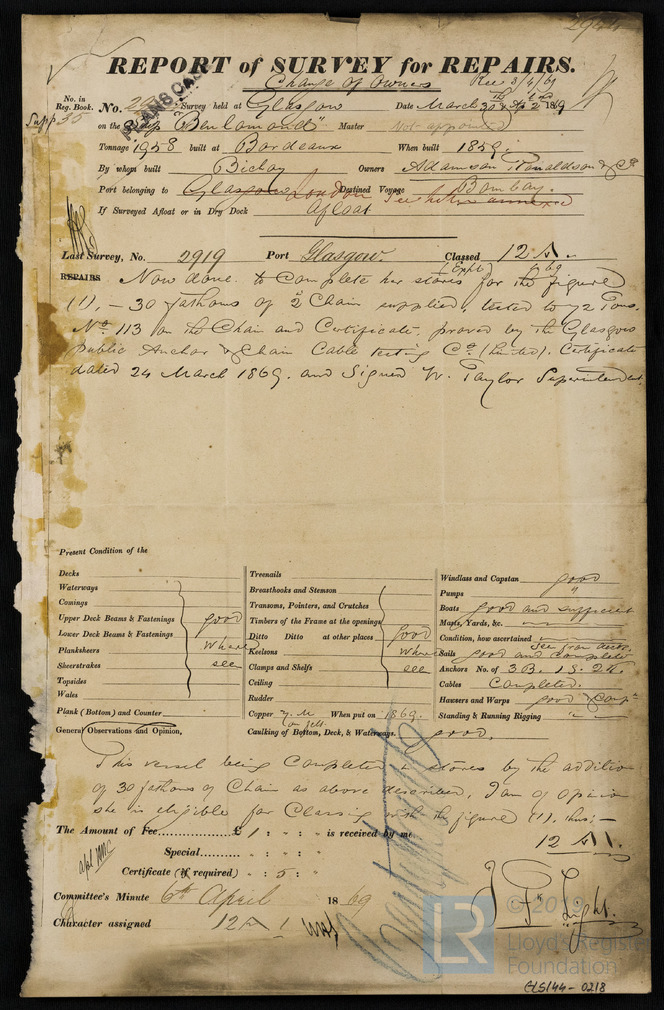 REPORT of SURVEY for REPAIRS.
Change of Owners Rec 3/4/69
No. in Reg. Book. No. Survey held at Glasgow Date March 30 & Ap 2 1869
Supp 35 on the Ship "Benlomond" Master Not appointed
PLANS
Tonnage 1958 built at Bordeaux When built 1859
By whom built Bichon Owners Adamson Ronaldson & Co
Port belonging to Glasgow London Destined Voyage Bombay.
If Surveyed Afloat or in Dry Dock Afloat See letter annexed
Last Survey, No. 2919 Port Glasgow. Classed 12 A.
REPAIRS Now done. to Complete her stores for the figure
(1), - 30 fathoms of 2 Chain supplied, tested to 72 Tons.
No. 113 on the Chain and Certificate, proved by the Glasgow
Public Anchor & Chain Cable testing Co. (Limited). Certificate
dated 24 March 1869. and Signed W. Taylor Superintendent
Present Condition of the
Decks
Waterways
Comings
Upper Deck Beams & Fastenings good
Lower Deck Beams & Fastenings
Planksheers where
Sheerstrakes see
Topsides
Wales
Plank (Bottom) and Counter
General Observations and Opinion,
Treenails
Breasthooks and Stemson
Transoms, Pointers, and Crutches
Timbers of the Frame at the openings
Ditto Ditto at other places good
Keelsons where
Clamps and Shelfs see
Ceiling
Rudder
Copper y. M on felt When put on 1869.
Caulking of Bottom, Deck, & Waterways. good.
Windlass and Capstan good
Pumps "
Boats good and sufficient
Masts, Yards, &c.
Condition, how ascertained See from deck
Sails good and complete
Anchors No. of 3 B. 1 S. 2 K.
Cables Completed.
Hawsers and Warps good & Comp
Standing & Running Rigging " "
This vessel being Completed in stores by the addition
of 30 fathoms of Chain as above described, I am of Opinion
she is eligible for Classing with the figure (1). thus:-
12 A 1.
The Amount of Fee £ 1 : : is received by me,
Special : :
Certificate (if required) : 5 :
Committee's Minute 6th April 1869
Character assigned 12 A 1
J F Light.
© 2019
LR
Lloyd's Register
Foundation
CLS144-0218